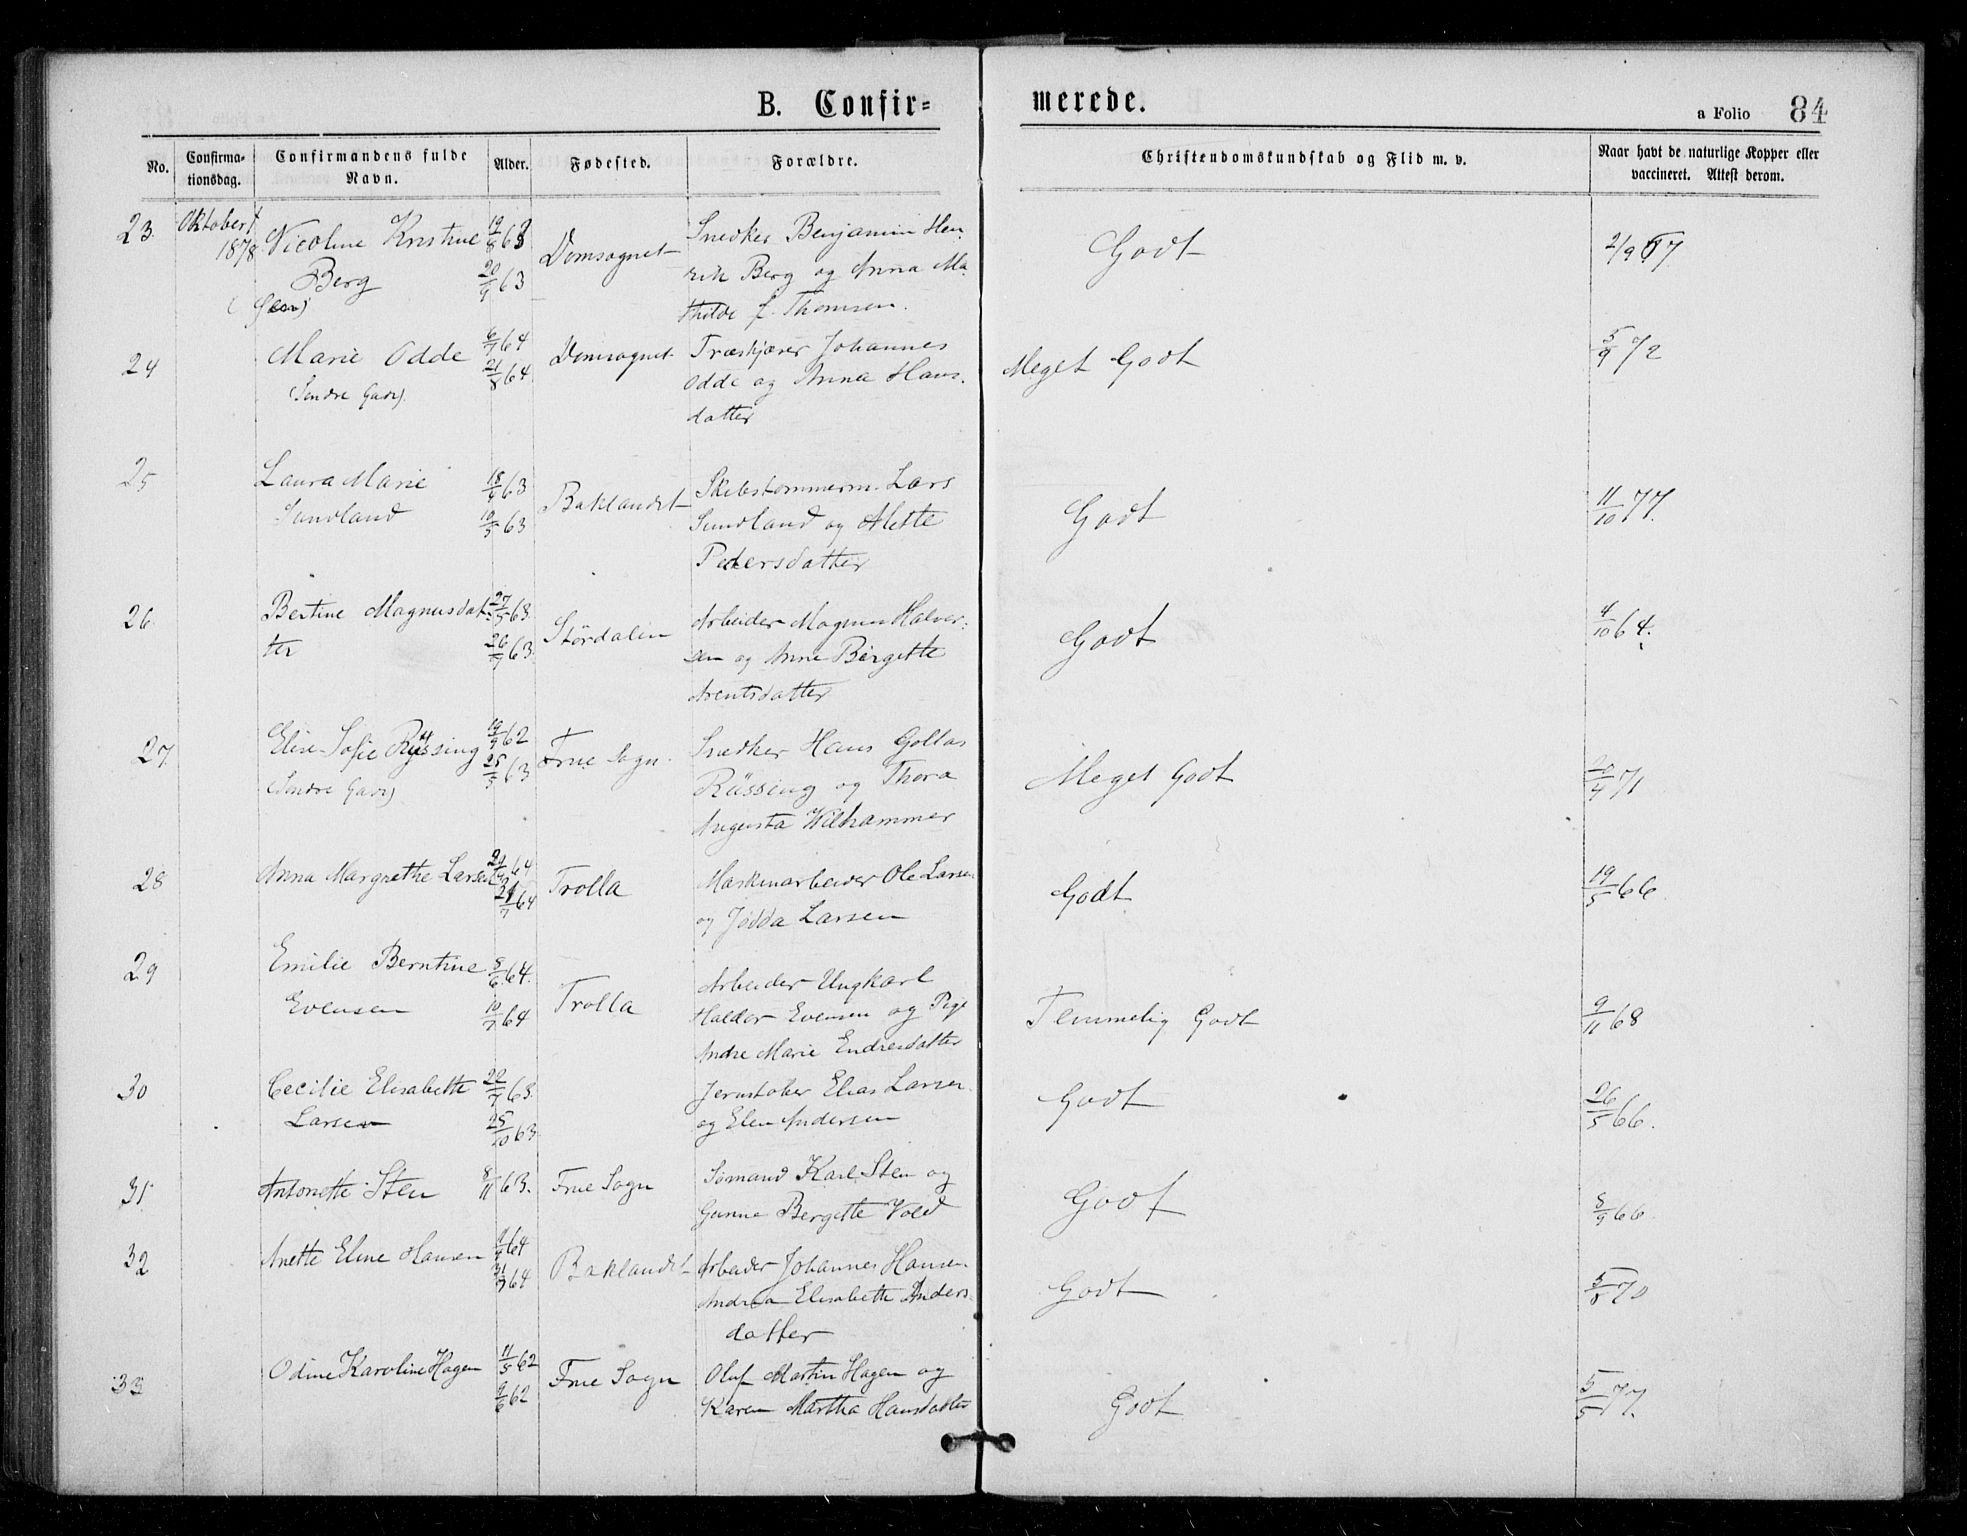 B. Confir=
merede.
a Folio 84
No.
Confirma-
tionsdag.
Confirmandens fulde
Navn.
Alder.
Fødested.
Forældre.
Christendomskundskab og Flid m. v.
Naar havt de naturlige Kopper eller
vaccineret. Attest derom.
23.
Oktober
1878
Nicoline Kristine
Berg
19/8 63
20/9 63
Domsognet
Snedker Benjamin Hen-
rik Berg og Anna Ma-
thilde f. Thomsen.
Godt
2/9 67.
24
Marie Odde
(Søndre Gade).
6/7 64
21/8 64
Domsognet
Træskjærer Johannes
Odde og Anna Hans.
datter
Meget Godt
5/9 72
25
Laura Marie
Sundland
18/4 63
10/5 63
Baklandet
Skibstømmerm. Lars
Sundland og Mette
Pedersdatter
Godt
11/10 77.
26
Bertine Magnusdat-
ter
27/5 63.
26/7 63.
Størdalen
Arbeider Magnus Halvor-
sen og Anne Bergitte
Arentsdatter
Godt
4/10 64.
27
Elise Sofie Rüssing
(Søndre Gade)
19/9 62
25/3 63
Frue Sogn.
Snedker Hans Goltas
Rüssing og Thora
Augusta Wilhammer
Meget Godt
20/4 71
28
Anna Margrethe Larsen
64
24/7 64
Trolla
Maskinarbeider Ole Larsen
og Jødda Larsen
Godt
19/5 66
29
Emilie Berntine
Evensen
5/6 64.
10/7 64
Trolla
Arbeider Ungkarl
Haldor Evensen og Pige
Andre Marie Endresdatter
Temmelig Godt
9/11 68
30
Cecilie Elisabeth
Larsen
22/7 63.
25/10 63
Jernstøber Elias Larsen
og Elen Andersen
Godt
26/5 66.
31
Antonette Sten
8/11 63.
Frue Sogn
Sømand Karl Sten og
Gunne Bergitte Vold
Godt
8/9 66
32
Anette Eline Hansen
64
31/7 64
Baklandet
Arbeider Johannes Hansen
Andrea Elisabeth Anders-
datter
Godt
5/8 70
33
Odine Karoline Hagen
11/5 62
9/6 62
Frue Sogn
Oluf Martin Hagen og
Karen Martha Hansdatter
Godt
5/5 77.